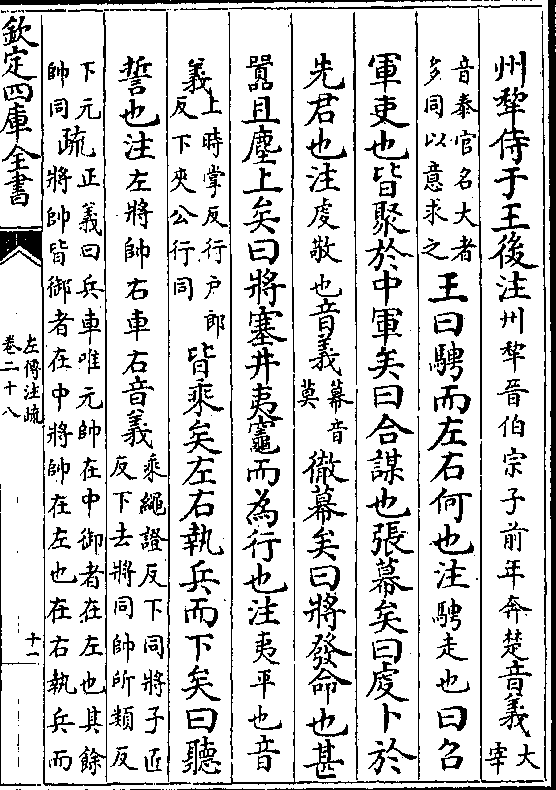 州犂侍于王後注州犂晉伯宗子前年奔楚音義大宰
音泰官名大者
多同以意求之
王曰騁而左右何也注騁走也曰召
軍吏也皆聚於中軍矣曰合謀也張幕矣曰虔卜於
先君也注虔敬也音義幕音
莫
徹幕矣曰將發命也甚
囂且塵上矣曰將塞井夷竈而為行也注夷平也音
義上時掌反行戸郎
反下夾公行同
皆乘矣左右執兵而下矣曰聽
誓也注左將帥右車右音義乘繩證反下同將子匠
反下去將同帥所類反
下元
帥同
疏正義曰兵車唯元帥在中御者在左也其餘
將帥皆御者在中將帥在左也在右執兵而
欽定四庫全書
左傳注疏
卷二十八
十一